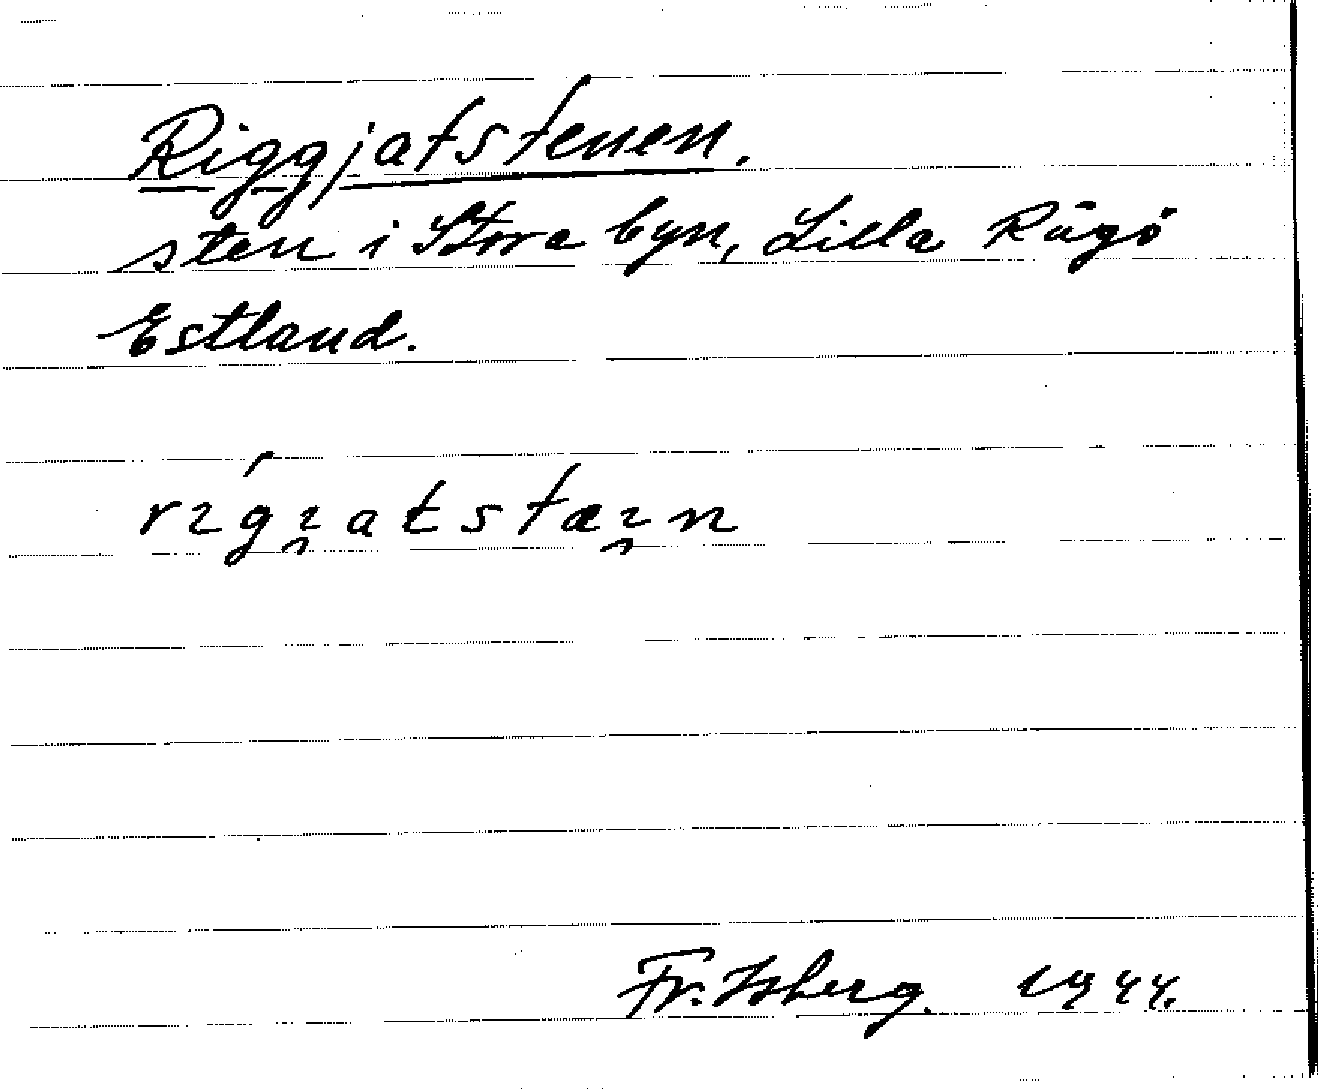 Riggjatstenen.
sten i Stora byn, Lilla Rågö
Estland.
rıǵı̯atstæı̯n
Fr. Isberg. 1944.